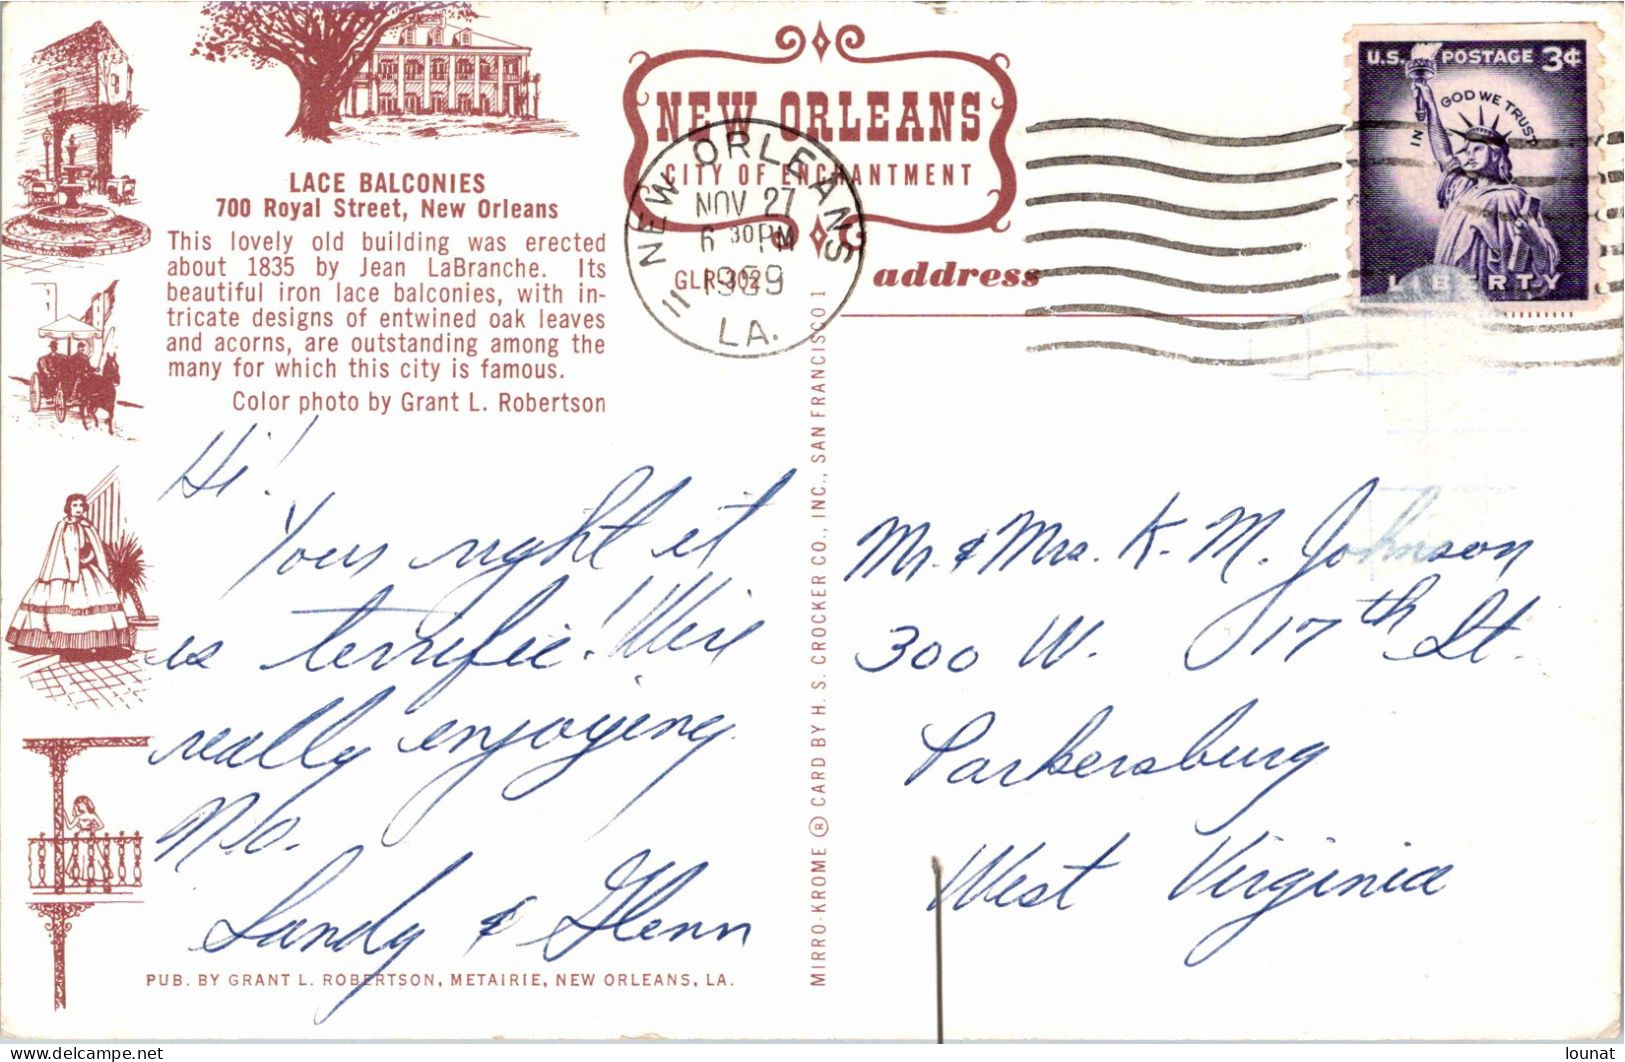 LACE BALCONIES
700 Royal Street, New Orleans
This lovely old building was erected
about 1835 by Jean LaBranche. Its
beautiful iron lace balconies, with in-
tricate designs of entwined oak leaves
and acorns, are outstanding among the
many for which this city is famous.
Color photo by Grant L. Robertson
Hi!
Yous right it
is terrific! Were
really enjoying
N.O.
Sandy & Glenn
PUB. BY GRANT L. ROBERTSON, METAIRIE, NEW ORLEANS, LA.
MIRRO-KROME ® CARD BY H. S. CROCKER CO., INC., SAN FRANCISCO 1
NEW ORLEANS
CITY OF ENCHANTMENT
NEW ORLEANS
NOV 27
6 30 PM
1959
LA.
GLR-302
address
U.S. POSTAGE 3¢
IN GOD WE TRUST
LIBERTY
Mr. & Mrs. K. M. Johnson
300 W. 17th St.
Parkersburg
West Virginia
delcampe.net
lounat